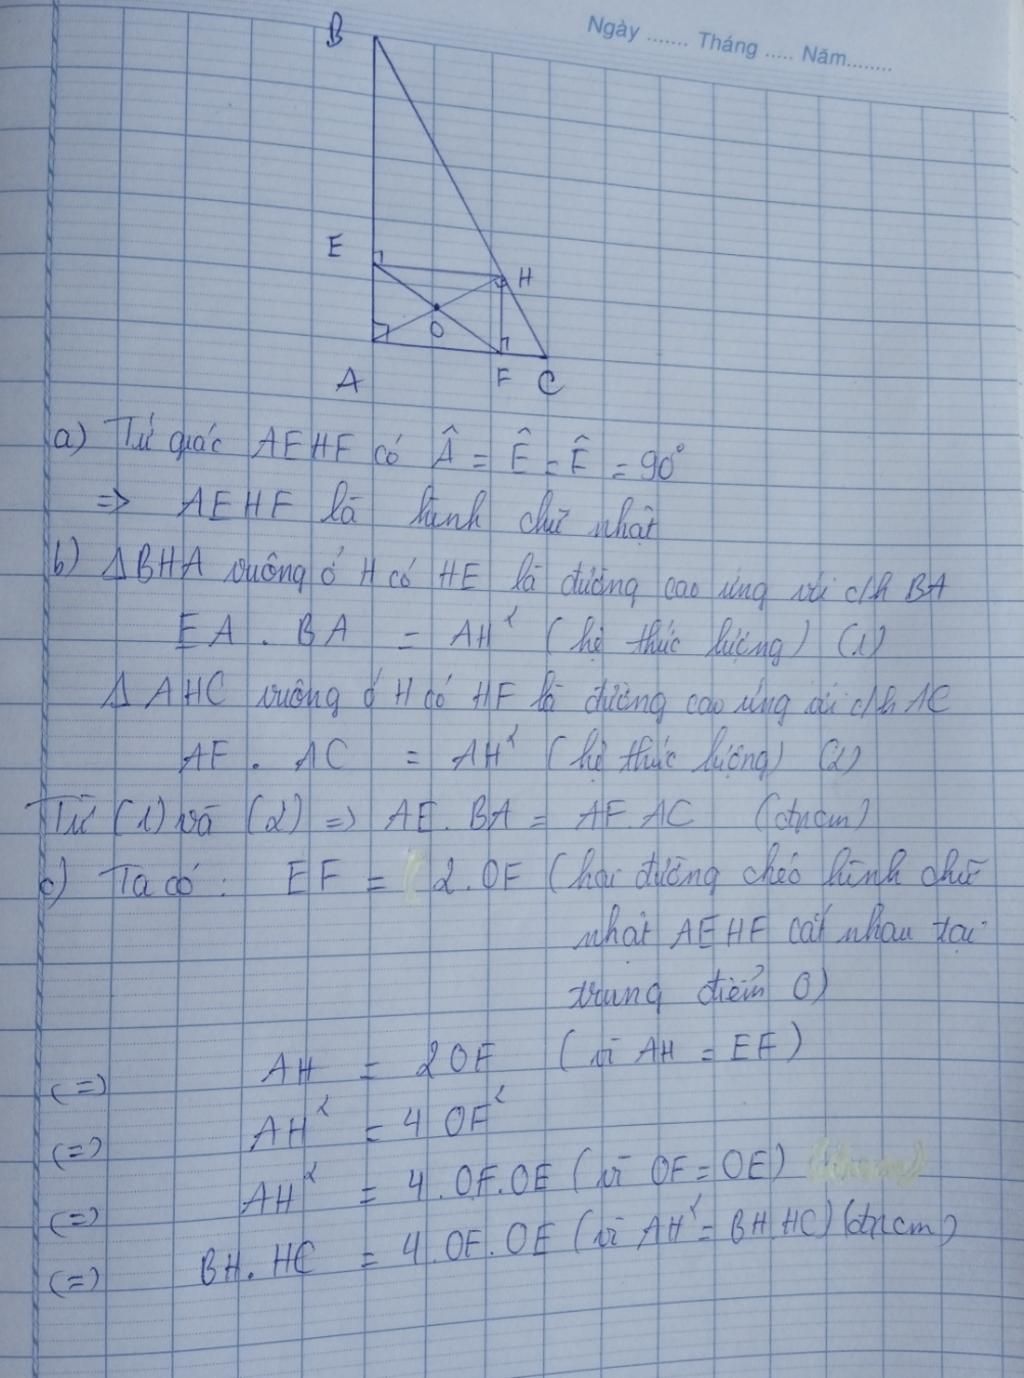 Ngày ....... Tháng ..... Năm........
B
E
H
O
A
F C
a) Tứ giác AEHF có Â = Ê = F̂ = 90°
=> AEHF là hình chữ nhật
b) ΔBHA vuông ở H có HE là đường cao ứng với c/h BA
EA . BA = AH² (hệ thức lượng) (1)
Δ AHC vuông ở H có HF là đường cao ứng với c/h AC
AF . AC = AH² (hệ thức lượng) (2)
Từ (1) và (2) => AE.BA = AF.AC (đpcm)
c) Ta có: EF = 2.OF (hai đường chéo hình chữ
nhật AEHF cắt nhau tại
trung điểm O)
(=) AH = 2OF (vì AH = EF)
(=) AH² = 4 OF²
(=) AH² = 4.OF.OE (vì OF=OE)
(=) BH.HC = 4.OF.OE (vì AH² = BH.HC) (đpcm)